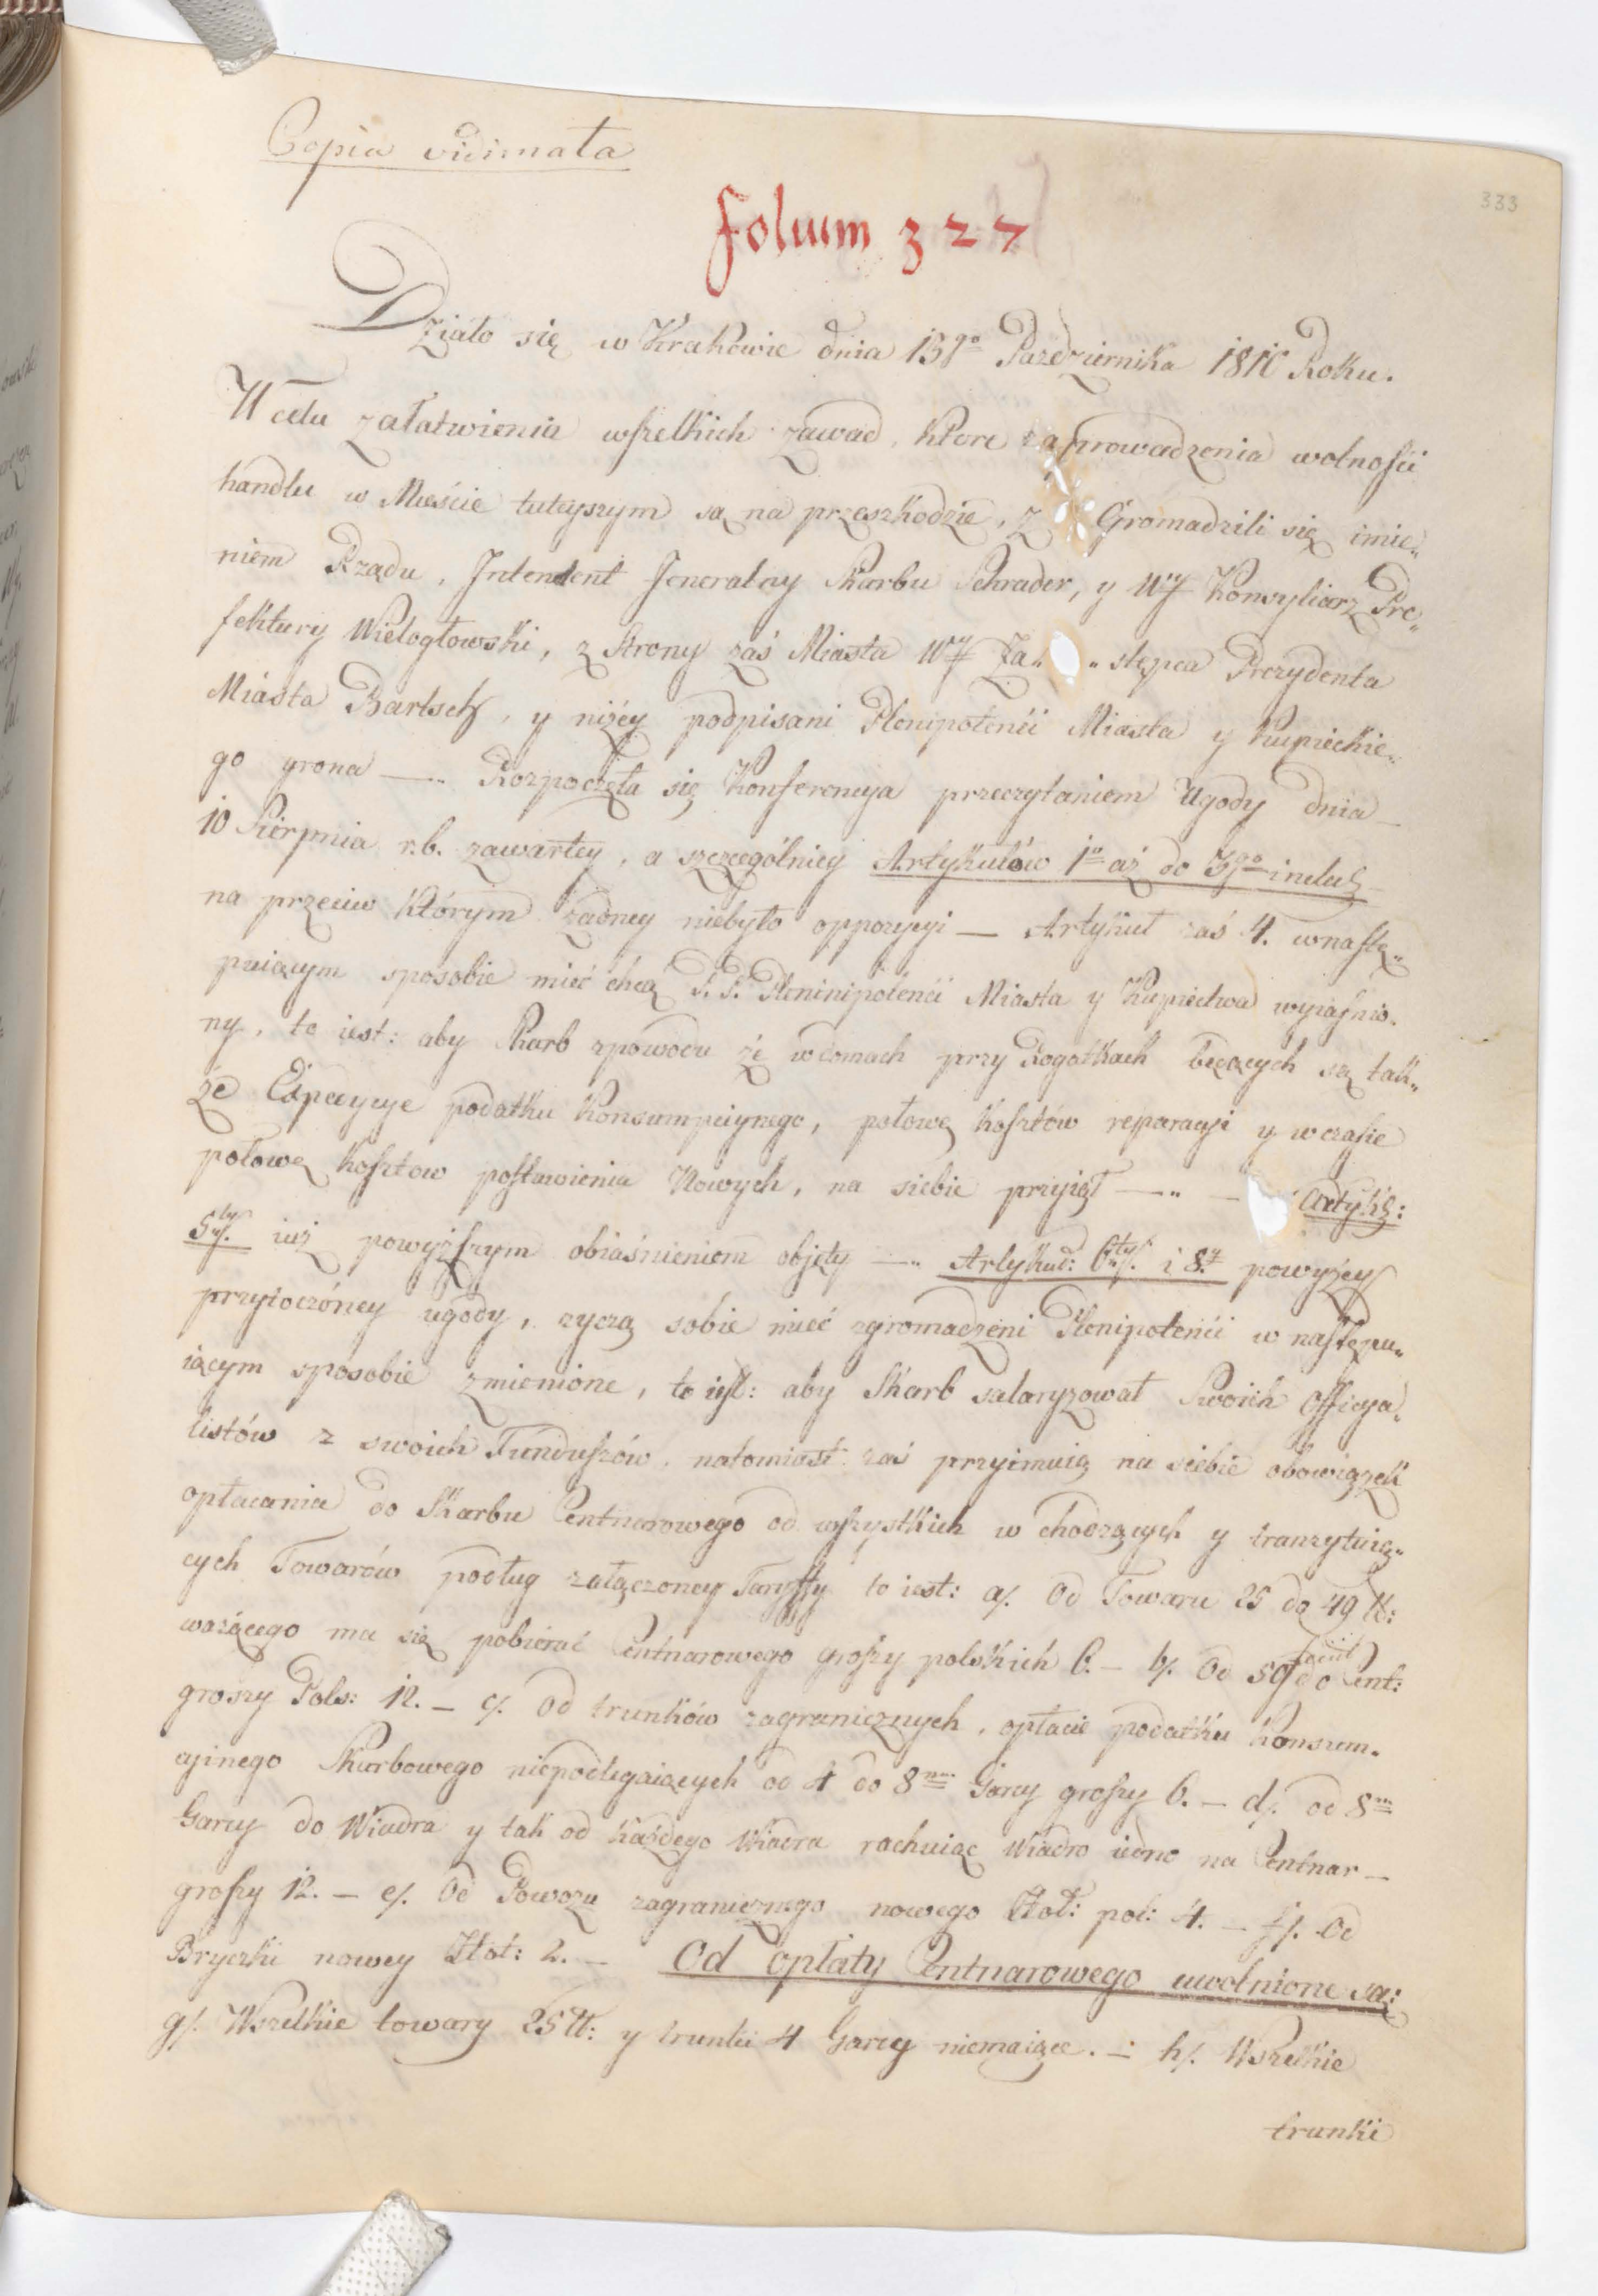 Copia vidimata
333
folium 327
Działo się w Krakowie dnia 13go Pazdziernika 1810 Roku.
W celu załatwienia wszelkich zawad, ktore zaprowadzenia wolności
handlu w Mieście tuteyszym są na przeszkodzie, z Gromadzili się imie„
niem Rządu, Intendent Jeneralny Skarbu Schrader, y Wy Konsyliarz Pre„
fektury Wielogłowski, z Strony zaś Miasta Wy Za„ „stępca Prezydenta
Miasta Bartsch, y niżey podpisani Plenipotenci Miasta y Kupieckie„
go grona —„ Rozpoczęła się Konferencya przeczytaniem Ugody dnia —
10 Sierpnia r.b. zawartey, a szczegolniey Artykułów 1o aż do 3go includ —
na przeciw którym żadney niebyło oppozycyi — Artykuł zaś 4. wnastę„
puiącym sposobie mieć chcą P.P. Pleninipotenci Miasta y Kupiectwa wyiaśnio„
ny, to iest: aby Skarb zpowodu że wdomach przy Rogatkach będących są tak„
że Expedycye podatku Konsumpcyinego, połowę kosztów reparacyi y wczasie
połowę kosztow postawienia Nowych, na siebie przyiął —„ — Artykł:
5ty. iuż powyższym obiaśnieniem objęty —„ Artykuł: 6ty. i 8y powyżey
przytoczóney ugody, życzą sobie mieć zgromadzeni Plenipotenci w następu„
iącym sposobie zmienione, to iest: aby Skarb salaryzował Swoich Officya„
listów z swoich Funduszów, natomiast zaś przyimuią na siebie obowiązek
opłacania do Skarbu Centnarowego od wszystkich w chodzących y tranzytuią„
cych Towarów podług załączoney Taryffy to iest: a/. Od Towaru 25 do 49 ℔:
ważącego ma się pobierać Centnarowego groszy polskich 6. — b/. Od 50 do Cent:
groszy Pols: 12. — c/. Od trunków zagranicznych, opłacie podatku Konsum„
cyinego Skarbowego niepodlegaiących od 4 do 8m Garcy groszy 6. — d/. od 8m
Garcy do Wiadra y tak od każdego Wiadra rachuiąc Wiadro iedno na Centnar —
groszy 12. — e/. Od Powozu zagranicznego nowego Złot: pol: 4. — f/. Od
Bryczki nowey Złot: 2. — Od opłaty Centnarowego uwolnione są:
g/. Wszelkie towary 25 ℔: y trunki 4 Garcy niemaiące. — h/. Wszelkie
trunki